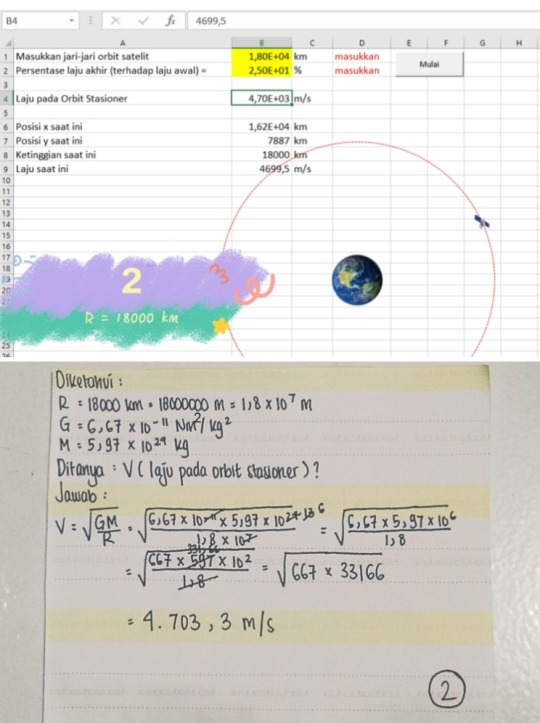 B4 fx 4699,5
A B C D E F G H
1 Masukkan jari-jari orbit satelit 1,80E+04 km masukkan
2 Persentase laju akhir (terhadap laju awal) = 2,50E+01 % masukkan
Mulai
3
4 Laju pada Orbit Stasioner 4,70E+03 m/s
5
6 Posisi x saat ini 1,62E+04 km
7 Posisi y saat ini 7887 km
8 Ketinggian saat ini 18000 km
9 Laju saat ini 4699,5 m/s
10
11
12
13
14
15
16
17
18
19
20
2
R = 18000 km
25
Diketahui :
R = 18000 km = 18000000 m = 1,8 x 10⁷ m
G = 6,67 x 10⁻¹¹ Nm²/kg²
M = 5,97 x 10²⁴ kg
Ditanya : V (laju pada orbit stasioner) ?
Jawab :
V = √GM/R = √6,67 x 10⁻¹¹ x 5,97 x 10²⁴ 13 6/1,8 x 10⁷ = √6,67 x 5,97 x 10⁶/1,8
= √667 x 597 331,66 x 10²/1,8 = √667 x 33166
= 4.703,3 m/s
2